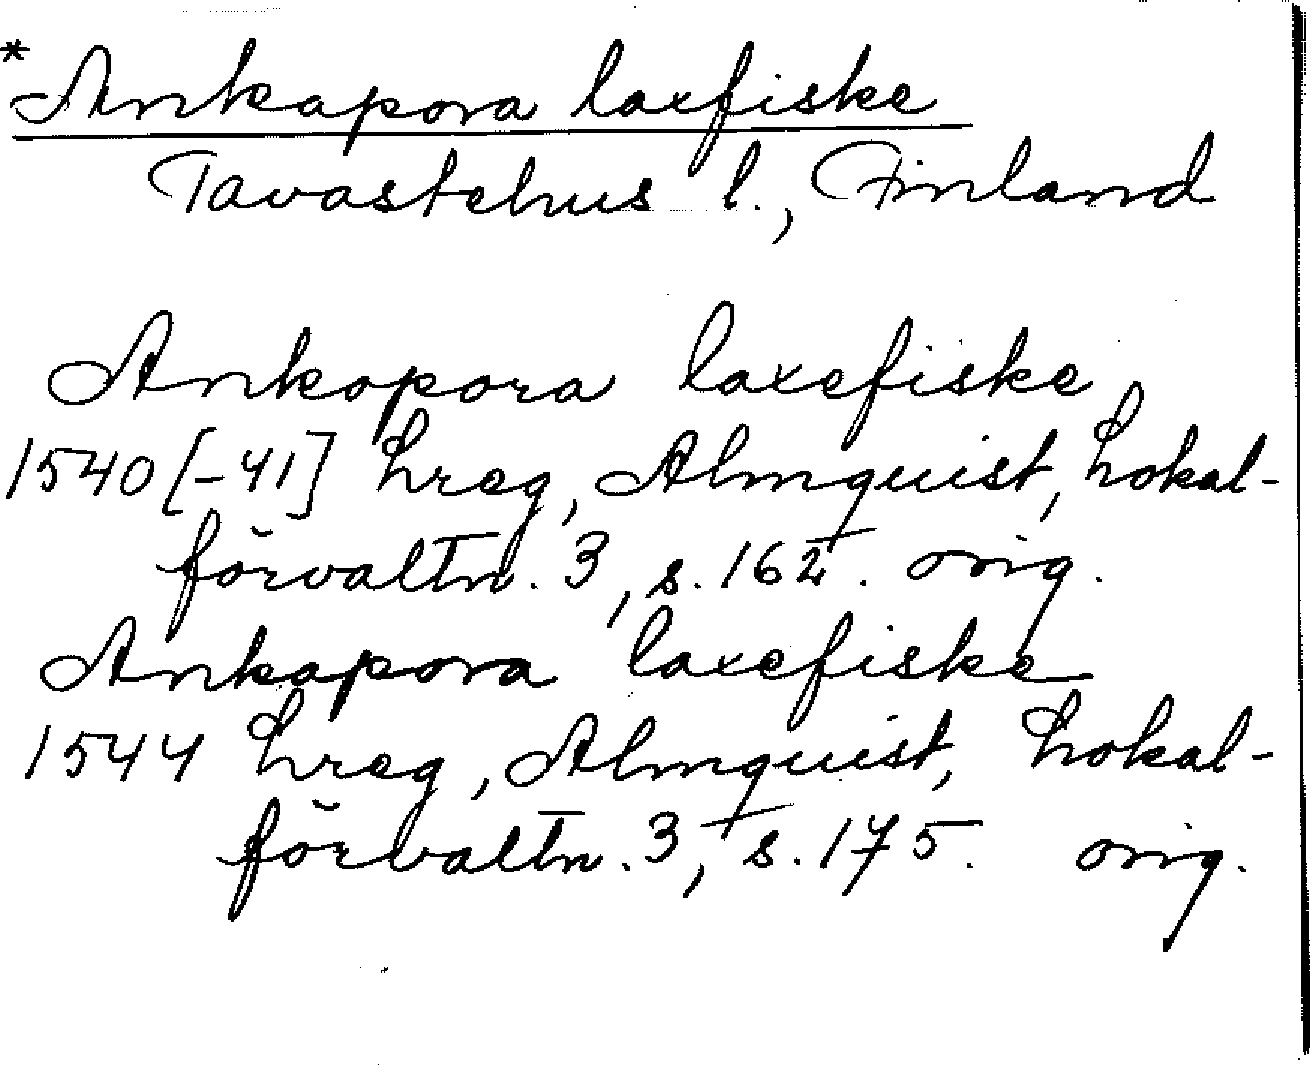 *Ankapora laxfiske
Tavastehus l., Finland
Ankopora laxefiske
1540 [-41] Lreg, Almquist, Lokal-
förvaltn. 3, s. 162. orig.
Ankapora laxefiske
1544 Lreg, Almquist, Lokal-
förvaltn. 3, s. 175. orig.